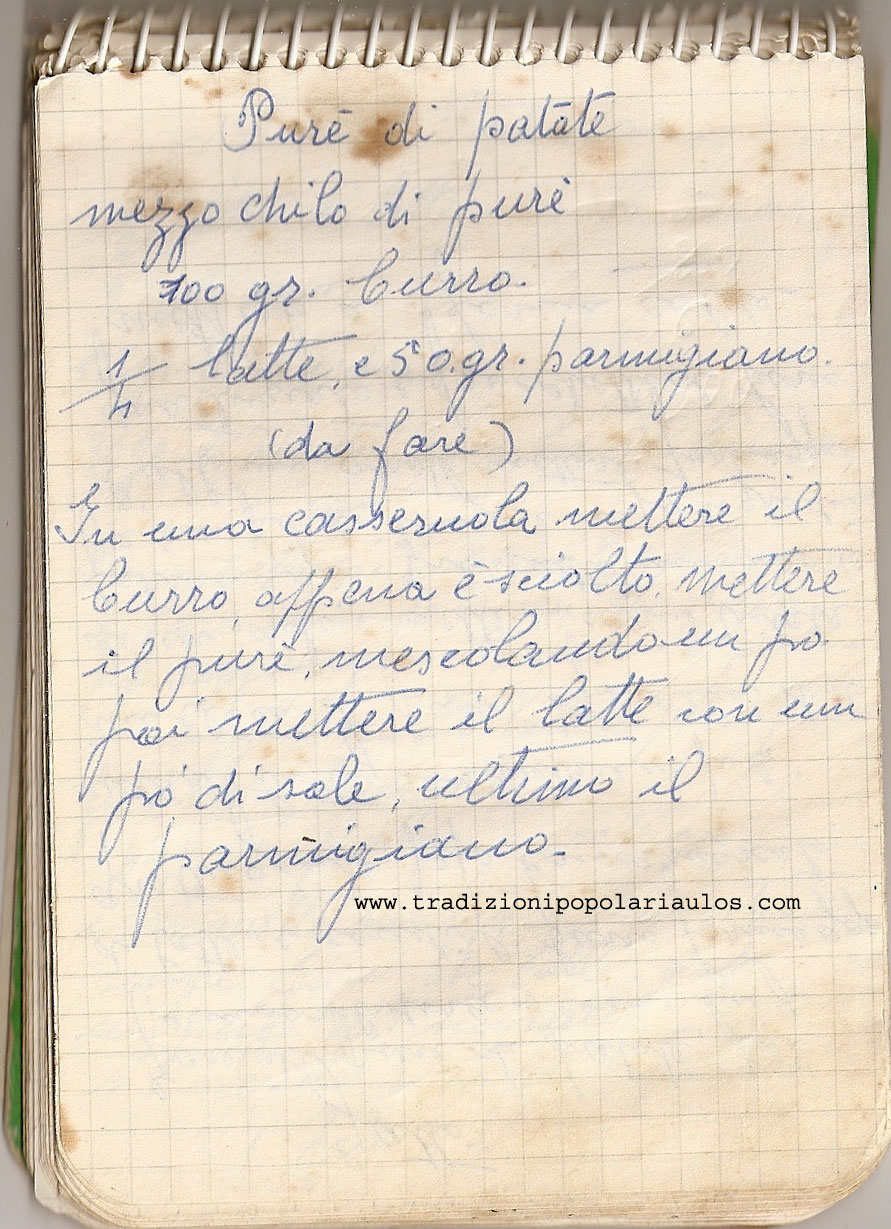 Purè di patate
mezzo chilo di purè
100 gr. burro.
1/4 latte, e 50.gr. parmigiano.
(da fare)
In una casseruola mettere il
burro, appena è sciolto, mettere
il purè, mescolando un po
poi mettere il latte con un
pò di sale, ultimo il
parmigiano.
www.tradizionipopolariaulos.com